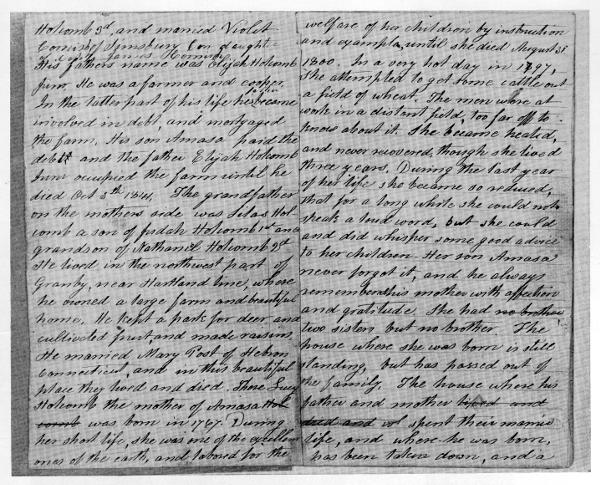 Holcomb 3d, and married Violet
Cornish of Symsbury Con daught
of Capt James Cornish
His fathers name was Elijah Holcomb
Junr. He was a farmer and cooper.
In the latter part of his life he became
involved in debt, and mortgaged
the farm. His son Amasa paid the
debt and the father Elijah Holcomb
Junr occupied the farm until he
died Oct 5th 1841. The grandfather
on the mothers side was Silas Hol-
comb a son of Judah Holcomb 1st and
grandson of Nathaniel Holcomb 2st
He lived in the northwest part of
Granby, near Hartland line, where
he owned a large farm and beautiful
home. He kept a park for deer and
cultivated fruit, and made raisins.
He married Mary Post of Hebron
Connecticut, and in this beautiful
place they lived and died. There Lucy
Holcomb the mother of Amasa Hol
comb was born in 1767. During
her short life, she was one of the excellent
ones of the earth, and labored for the
welfare of her children by instruction
and example, until she died August 31
1800. In a very hot day in 1797,
she attempted to get some cattle out
of a field of wheat. The men were at
work in a distant field, too far off to
know about it. She became heated,
and never recovered, though she lived
three years. During the last year
of her life she became so reduced,
that for a long while she could not
speak a loud word, but she could
and did whisper some good advice
to her children. Her son Amasa
never forgot it, and he always
remembers his mother with affection
and gratitude. She had no brother
two sisters but no brother. The
house where she was born is still
standing, but has passed out of
the family. The house where his
father and mother lived and
died and spent their married
life, and where he was born,
has been taken down, and a